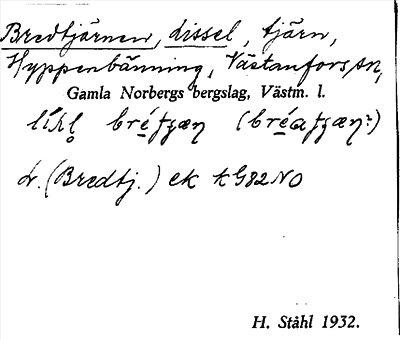 Bredtjärnen, dissel, tjärn,
Hyppenbänning, Västanfors sn,
Gamla Norbergs bergslag, Västm. l.
bré (bré
dr. (Bredtj.) ek k G82 NO
H. Ståhl 1932.